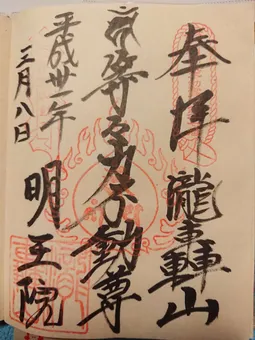 奉拝 瀧轟山
等々力不動尊
平成卅一年
三月八日
明王院